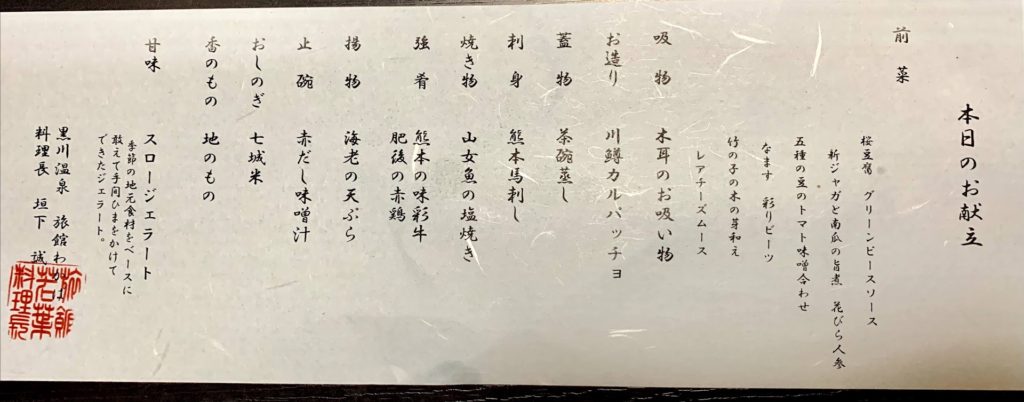 本日のお献立
前菜
桜豆腐 グリーンピースソース
新ジャガと南瓜の旨煮 花びら人参
五種の豆のトマト味噌合わせ
なます 彩りビーツ
竹の子の木の芽和え
レアチーズムース
吸物 木耳のお吸い物
お造り 川鱒カルパッチョ
蓋物 茶碗蒸し
刺身 熊本馬刺し
焼き物 山女魚の塩焼き
強肴 熊本の味彩牛
肥後の赤鶏
揚物 海老の天ぷら
止碗 赤だし味噌汁
おしのぎ 七城米
香のもの 地のもの
甘味 スロージェラート
季節の地元食材をベースに
敢えて手間ひまをかけて
できたジェラート。
黒川温泉 旅館わかば
料理長 垣下 誠
旅館
若葉
料理長